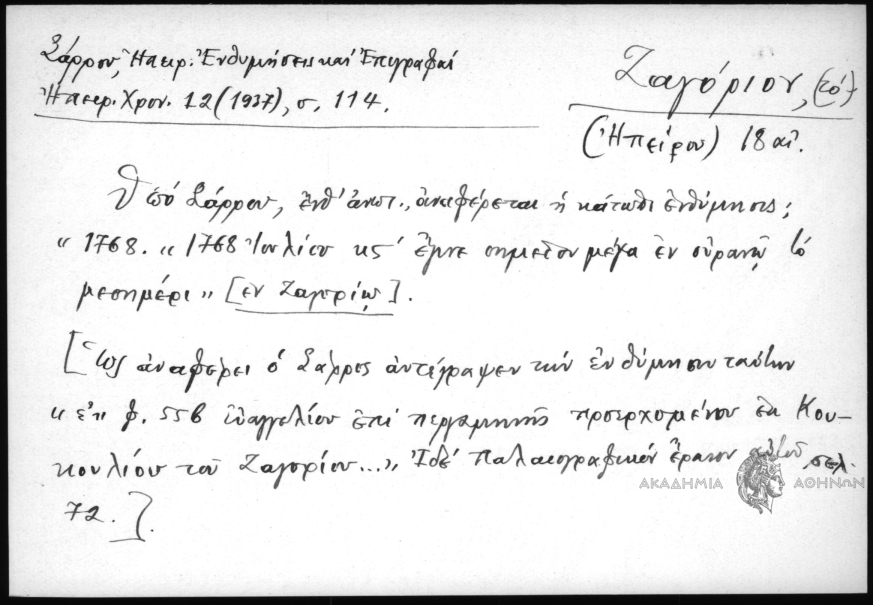 Σάρρου, Ἠπειρ. Ἐνθυμήσεις καὶ Ἐπιγραφαί
Ἠπειρ. Χρον. 12 (1937), σ. 114.
Ζαγόριον, (τό)
(Ἠπείρου) 18 αἰ.
Ὑπό Σάρρου, ἔνθ' ἀνωτ., ἀναφέρεται ἡ κάτωθι ἐνθύμησις;
"1768. "1768 Ἰουλίου κς' ἔγινε σημεῖον μέγα ἐν οὐρανῷ τό
μεσημέρι" [ἐν Ζαγορίῳ].
[Ὡς ἀναφέρει ὁ Σάρρος ἀντέγραψεν τήν ἐνθύμησιν ταύτην
"ἐπ φ. 55β Εὐαγγελίου ἐπί περγαμηνῆς προερχομένου ἐκ Κου-
κουλίου τοῦ Ζαγορίου..." Ἰδέ Παλαιογραφικόν ἔρανον αὐτοῦ, σελ.
72.].
ΑΚΑΔΗΜΙΑ ΑΘΗΝΩΝ